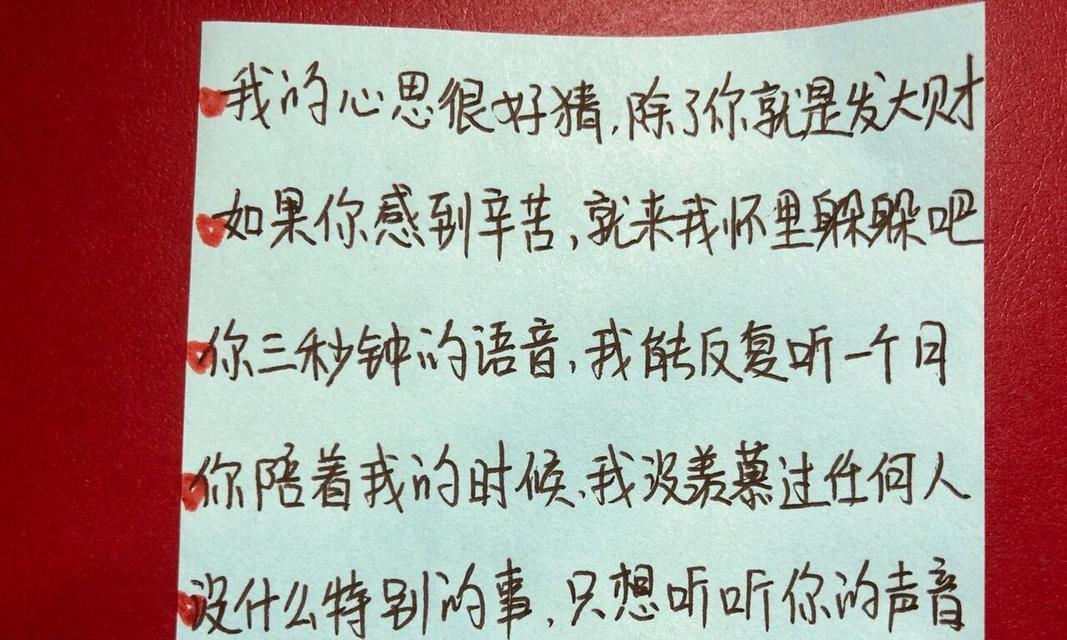 我的心思很好猜,除了你就是发大财
如果你感到辛苦,就来我怀里躲躲吧
你三秒钟的语音,我能反复听一个月
你陪着我的时候,我没羡慕过任何人
没什么特别的事,只想听听你的声音